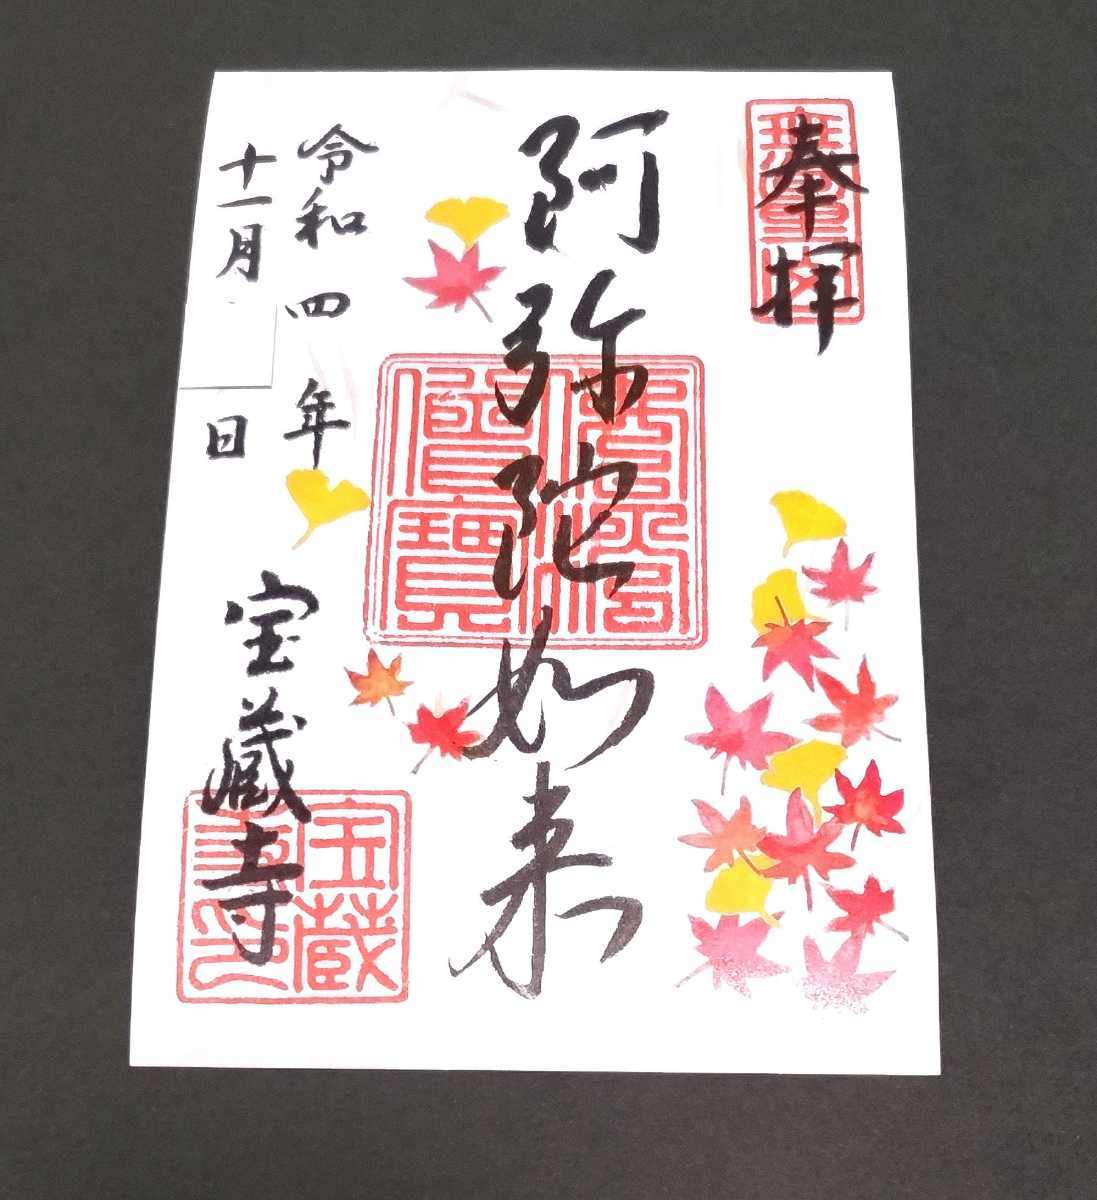 奉拝
阿弥陀如来
佛法僧寶
令和四年
十一月 日
宝蔵寺
宝蔵寺印